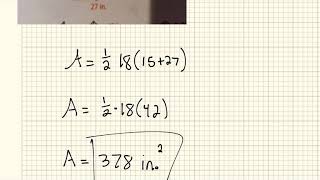 27 in.
A = 1/2 18(15+27)
A = 1/2 · 18(42)
A = 378 in.²